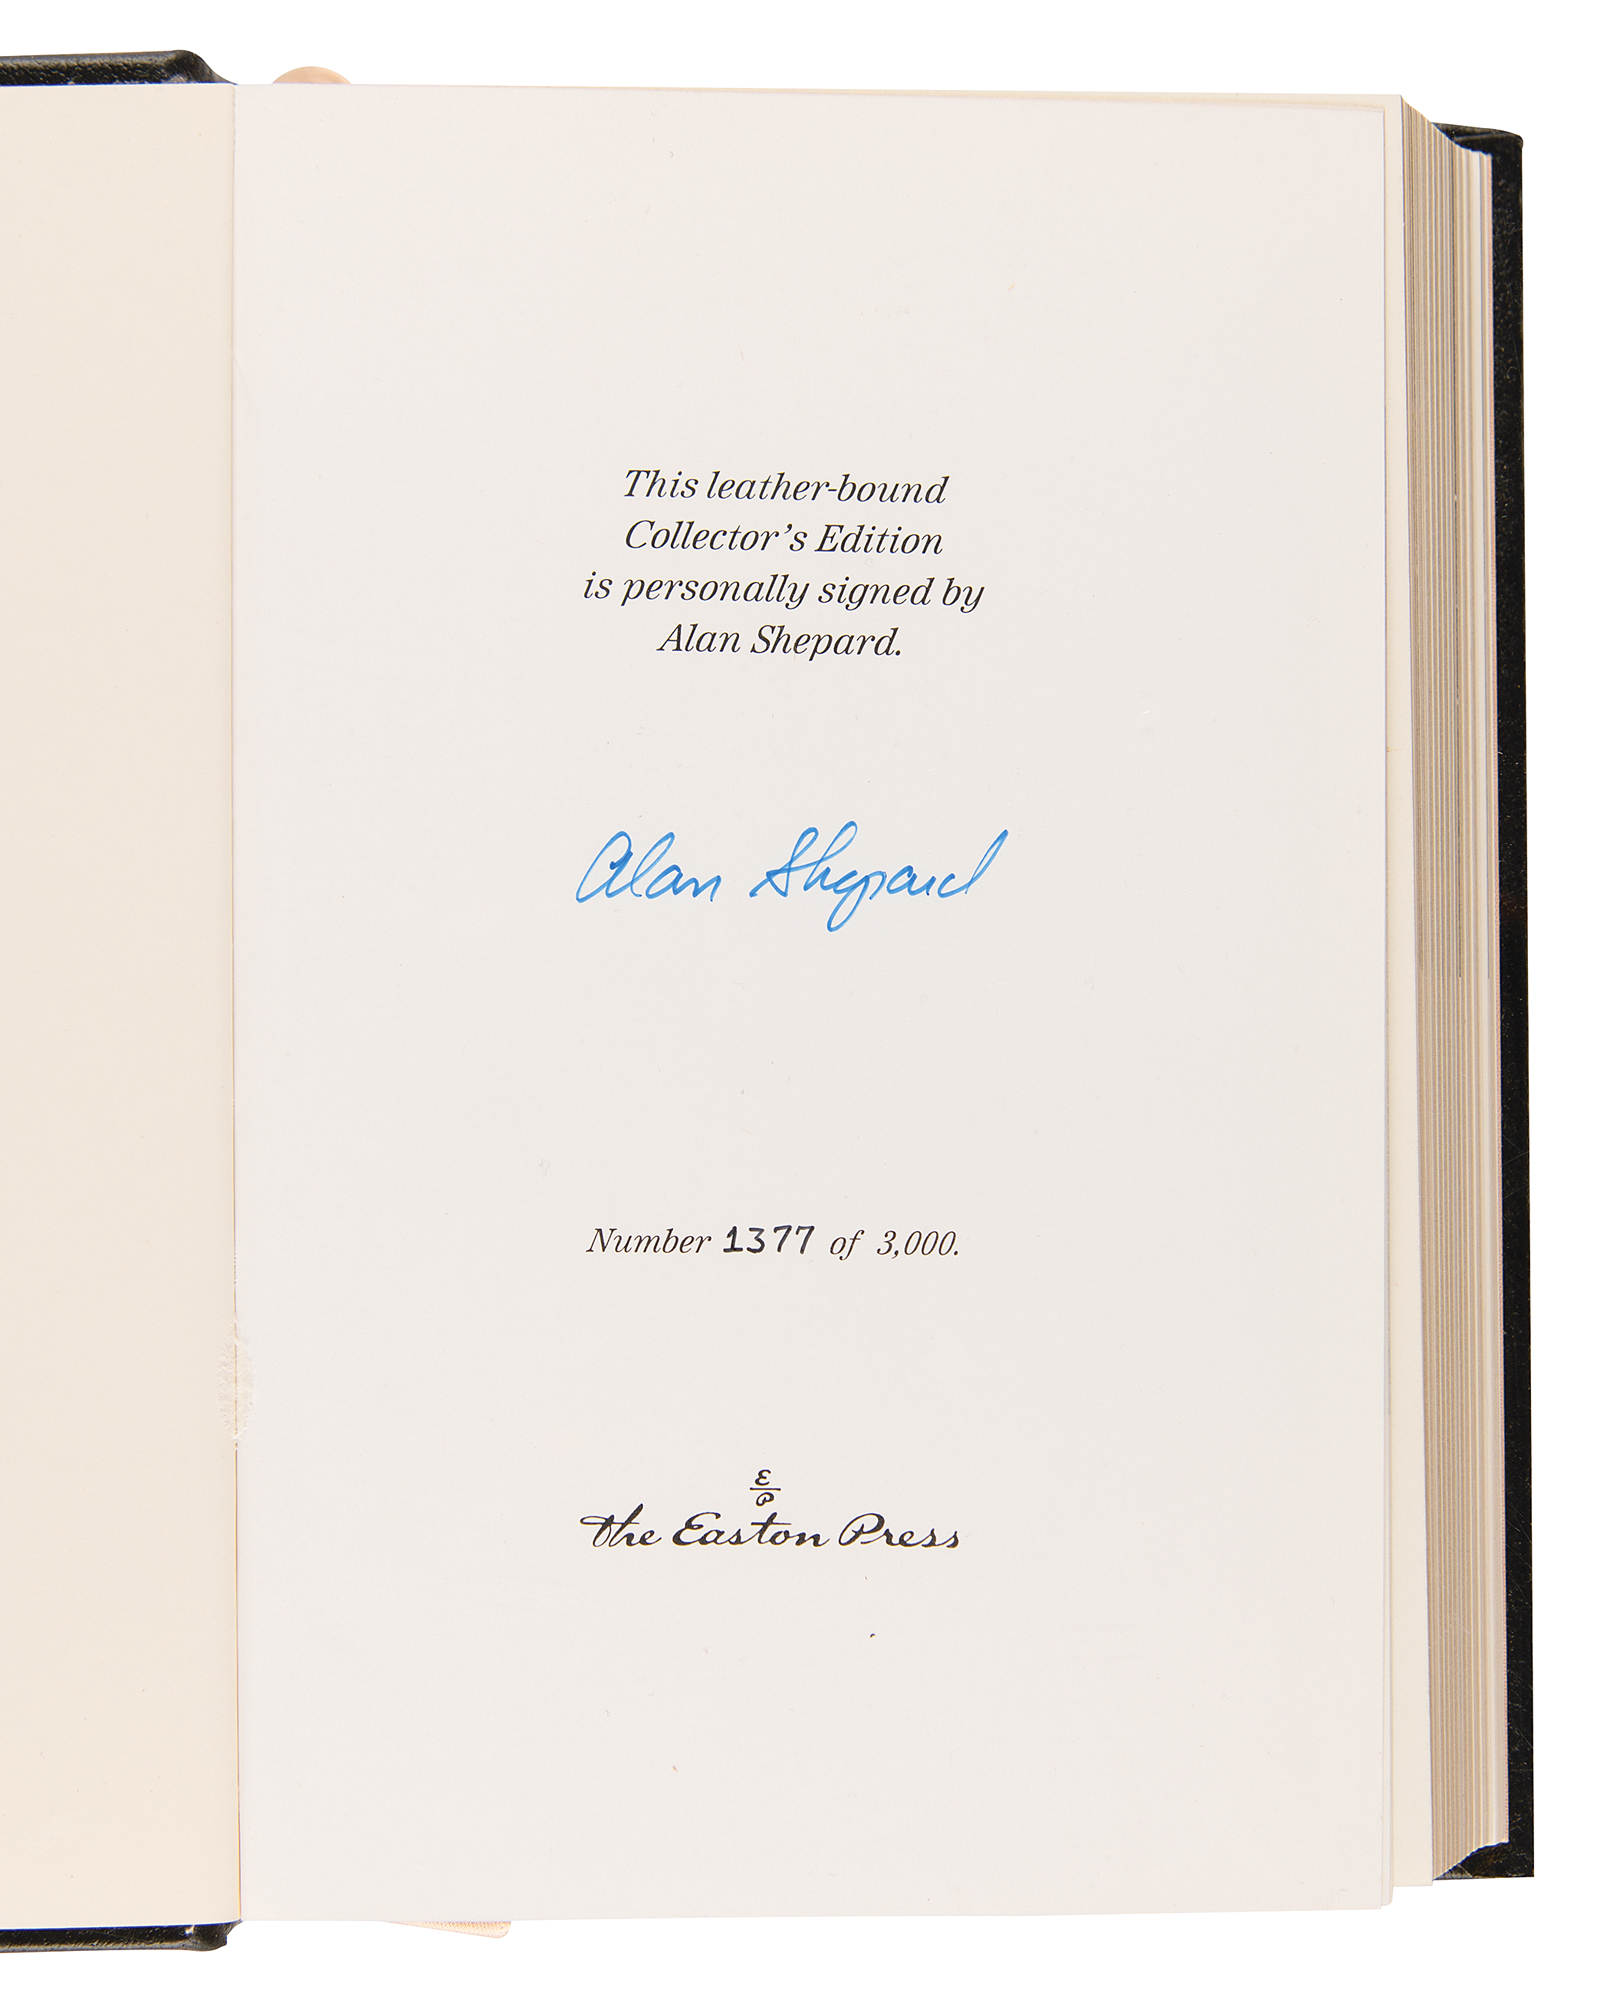 This leather-bound
Collector's Edition
is personally signed by
Alan Shepard.
Alan Shepard
Number 1377 of 3,000.
E
P
The Easton Press